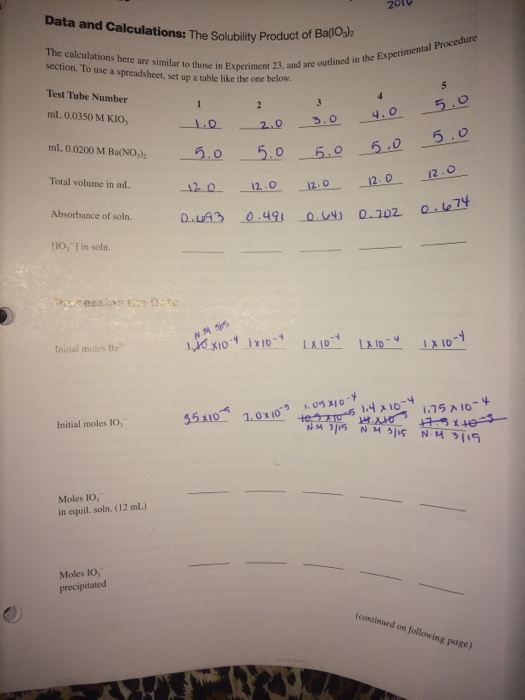 2010
Data and Calculations: The Solubility Product of Ba(IO₃)₂
The calculations here are similar to those in Experiment 23, and are outlined in the Experimental Procedure
section. To use a spreadsheet, set up a table like the one below.
Test Tube Number 1 2 3 4 5
mL 0.0350 M KIO₃ 1.0 2.0 3.0 4.0 5.0
mL 0.0200 M Ba(NO₃)₂ 5.0 5.0 5.0 5.0 5.0
Total volume in mL 12.0 12.0 12.0 12.0 12.0
Absorbance of soln. 0.693 0.491 0.641 0.702 0.674
[IO₃⁻] in soln.
Processing the Data
N.M 3/15
Initial moles Ba²⁺ x10⁻⁴ 1x10⁻⁴ 1x10⁻⁴ 1x10⁻⁴ 1x10⁻⁴
1.05 x10⁻⁴ 1.4 x 10⁻⁴ 1.75 x 10⁻⁴
Initial moles IO₃⁻ 35x10⁻⁵ 7.0x10⁻⁵ 10.5x10⁻⁵ 14x10⁻⁵ 17.5x10⁻⁵
N.M 3/15 N.M 3/15 N.M 3/15
Moles IO₃⁻
in equil. soln. (12 mL)
Moles IO₃⁻
precipitated
(continued on following page)